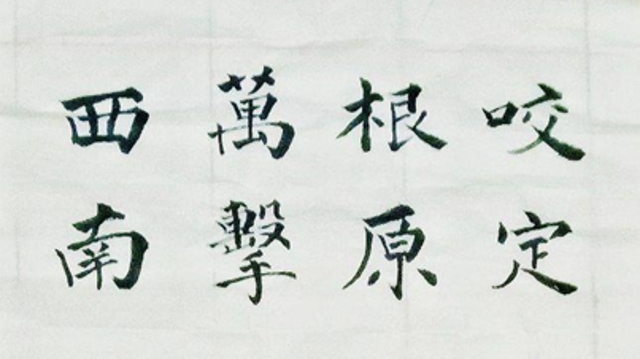 咬定
根原
萬擊
西南